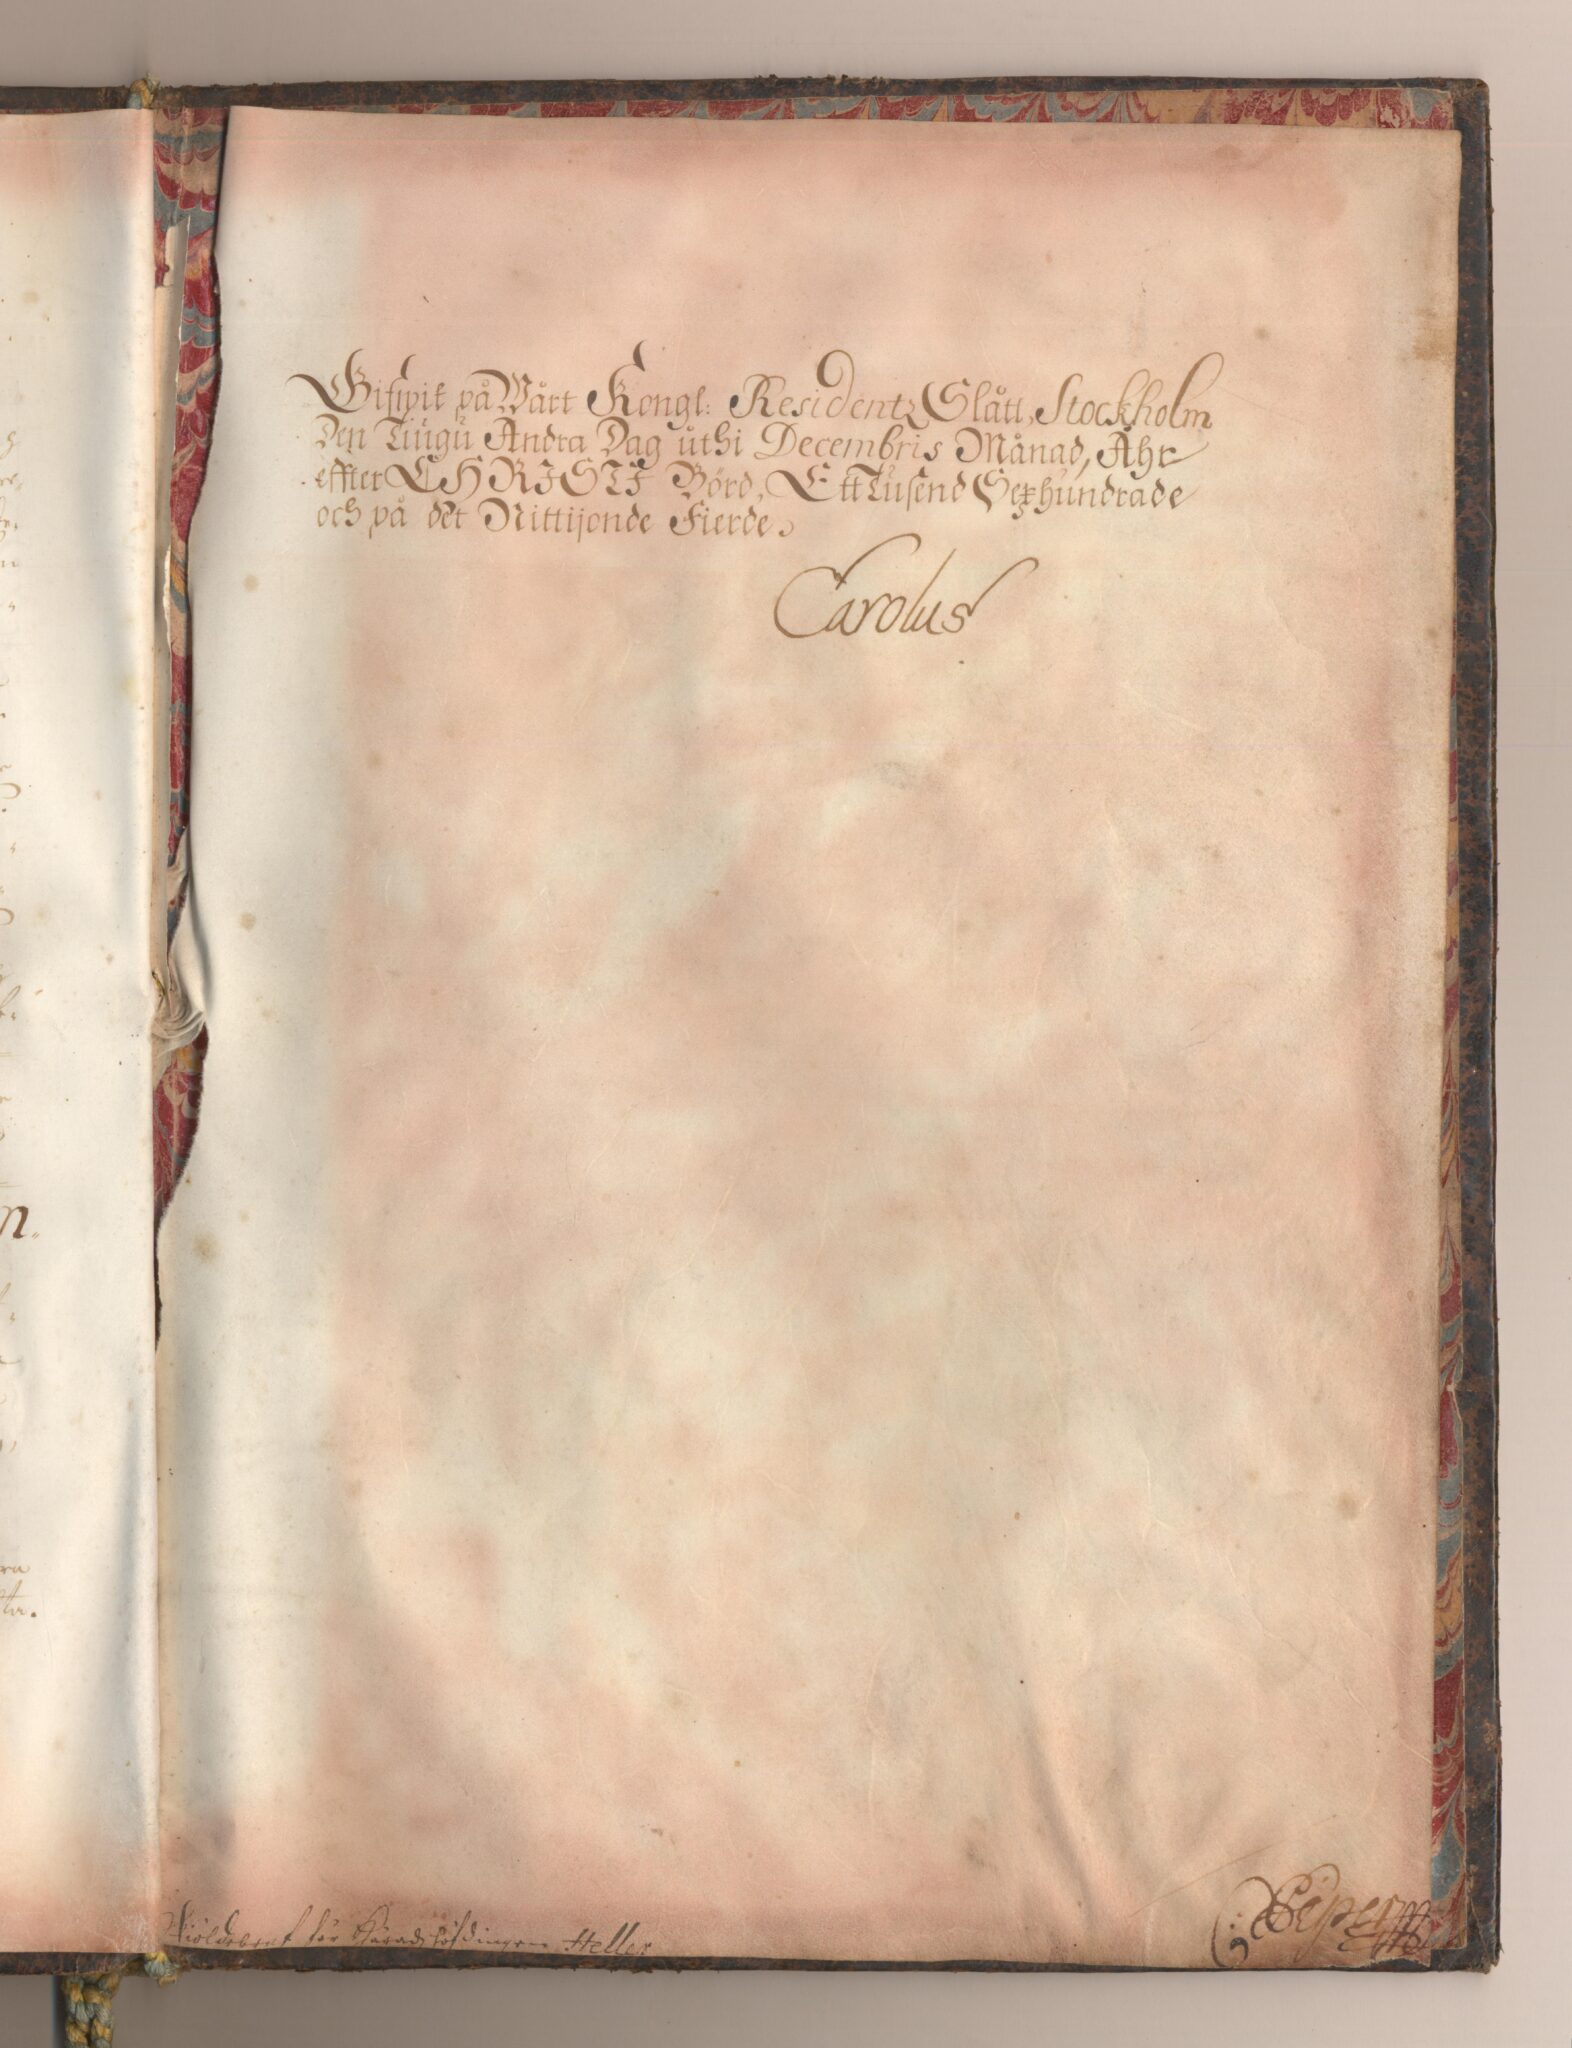 Gifwit på Wårt Kongl: Residentz Slått, Stockholm
Den Tiugu Andra Dag uthi Decembris Månad, Åhr
effter CHRISTI Börd, Ett Tusend Sexhundrade
och på det Nittijonde Fierde.
Carolus
C: Piper
Skiöldebref för Häradshöfdingen Heller